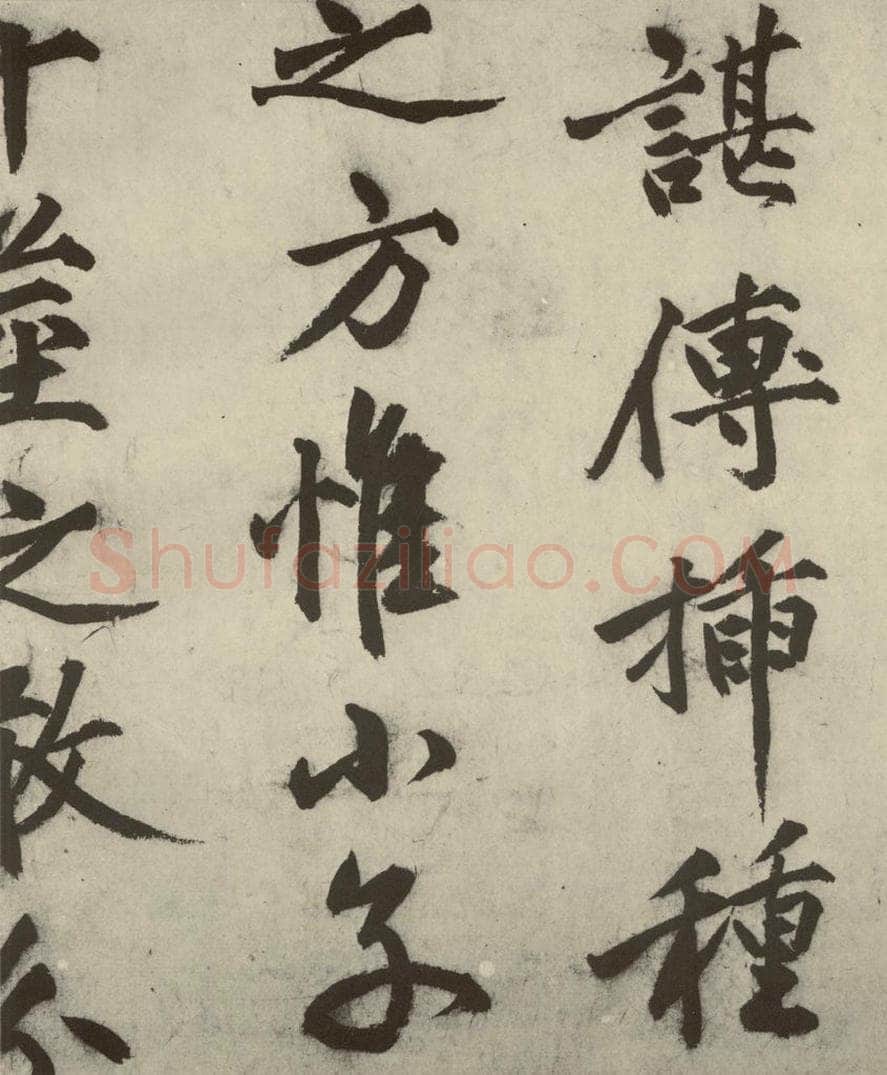 諶傳插種
之方惟小子
十莖之
Shufaziliao.COM